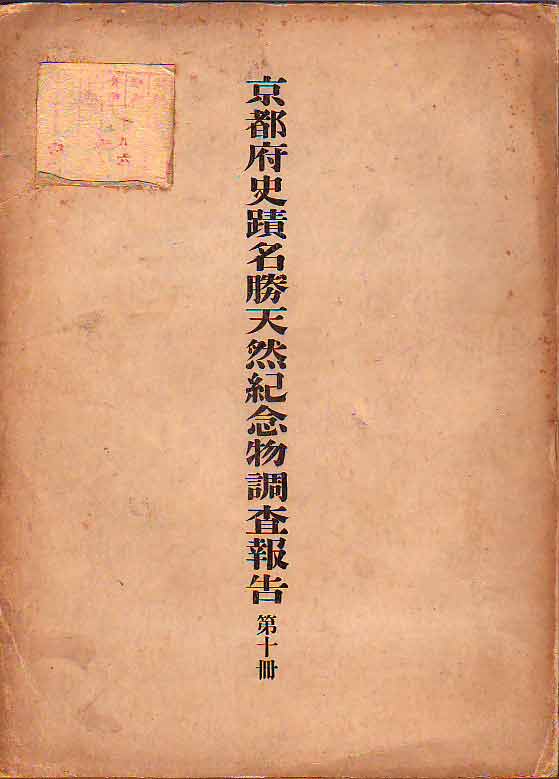 京都府史蹟名勝天然紀念物調査報告 第十冊